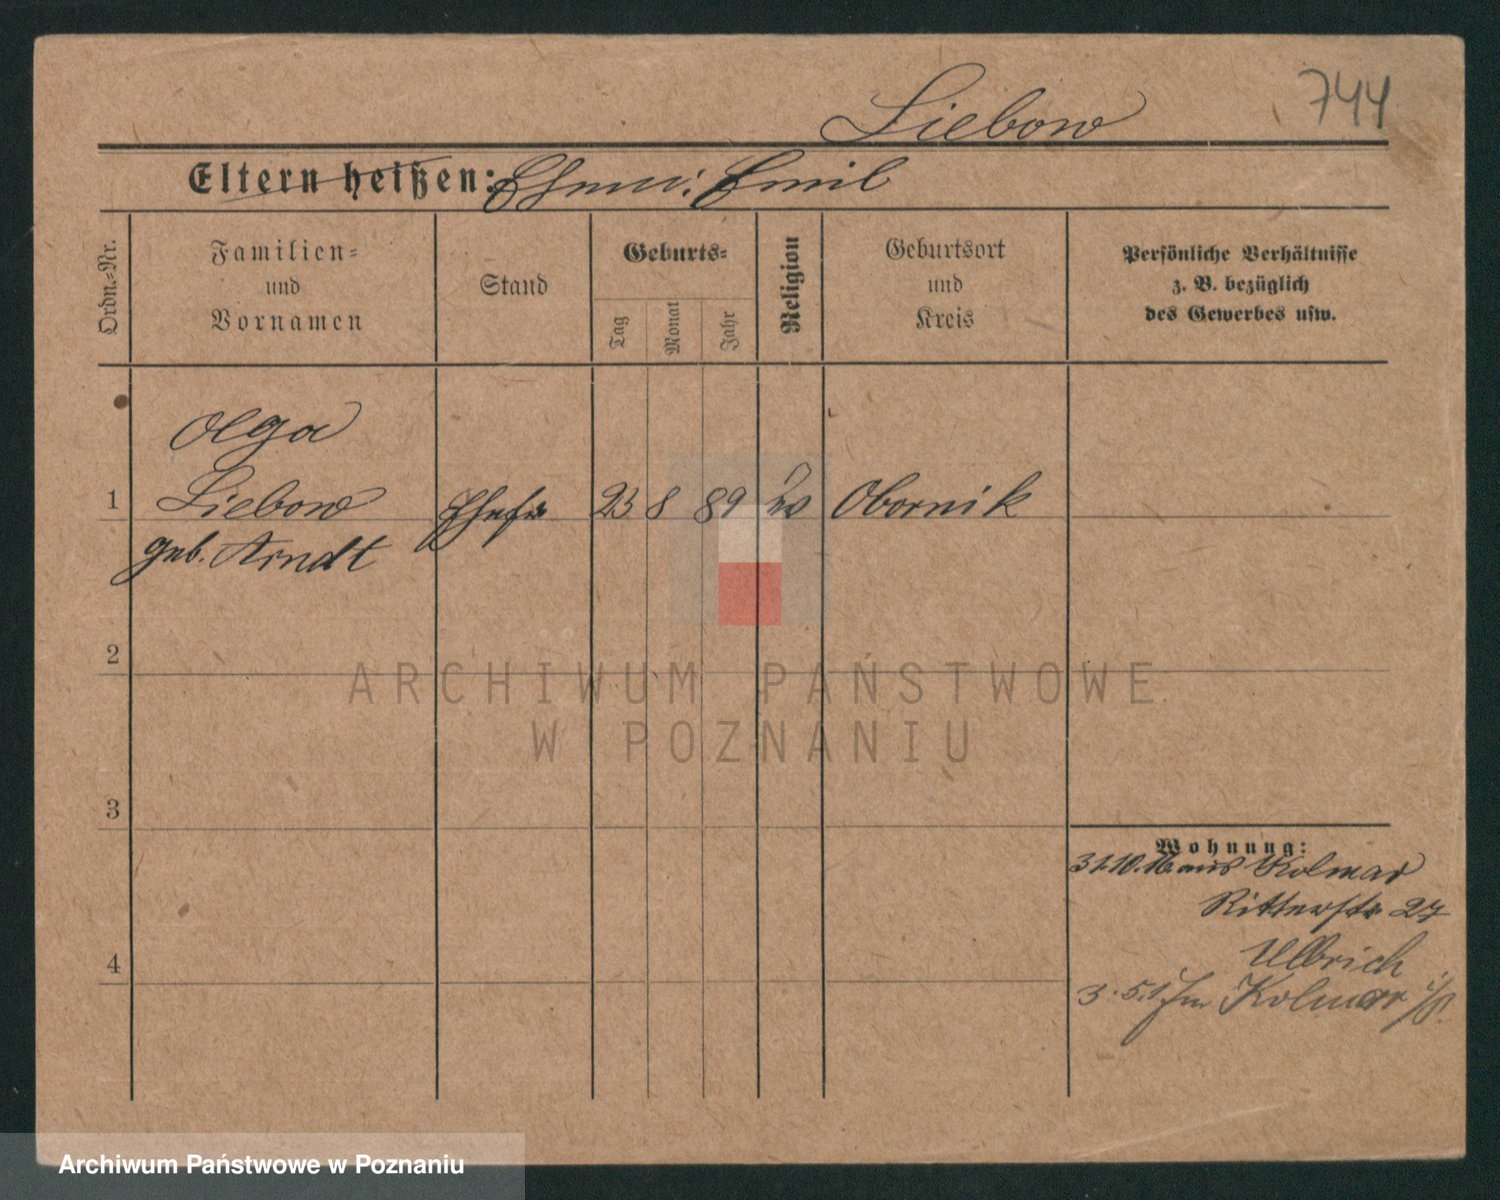 744
Liebow
Eltern heißen: Ehem: Emil
Ordn.-Nr.
Familien=
und
Vornamen
Stand
Geburts=
Tag
Monat
Jahr
Religion
Geburtsort
und
Kreis
Persönliche Verhältnisse
z. B. bezüglich
des Gewerbes usw.
Olga
1 Liebow Ehefr 23 8 89 Obornik
geb. Arndt
2
ARCHIWUM PAŃSTWOWE
W POZNANIU
3
Wohnung:
31.10.16 aus Kolmar
Ritterstr 27
Ullrich
4
3.5.17 Kolmar i/P.
Archiwum Państwowe w Poznaniu